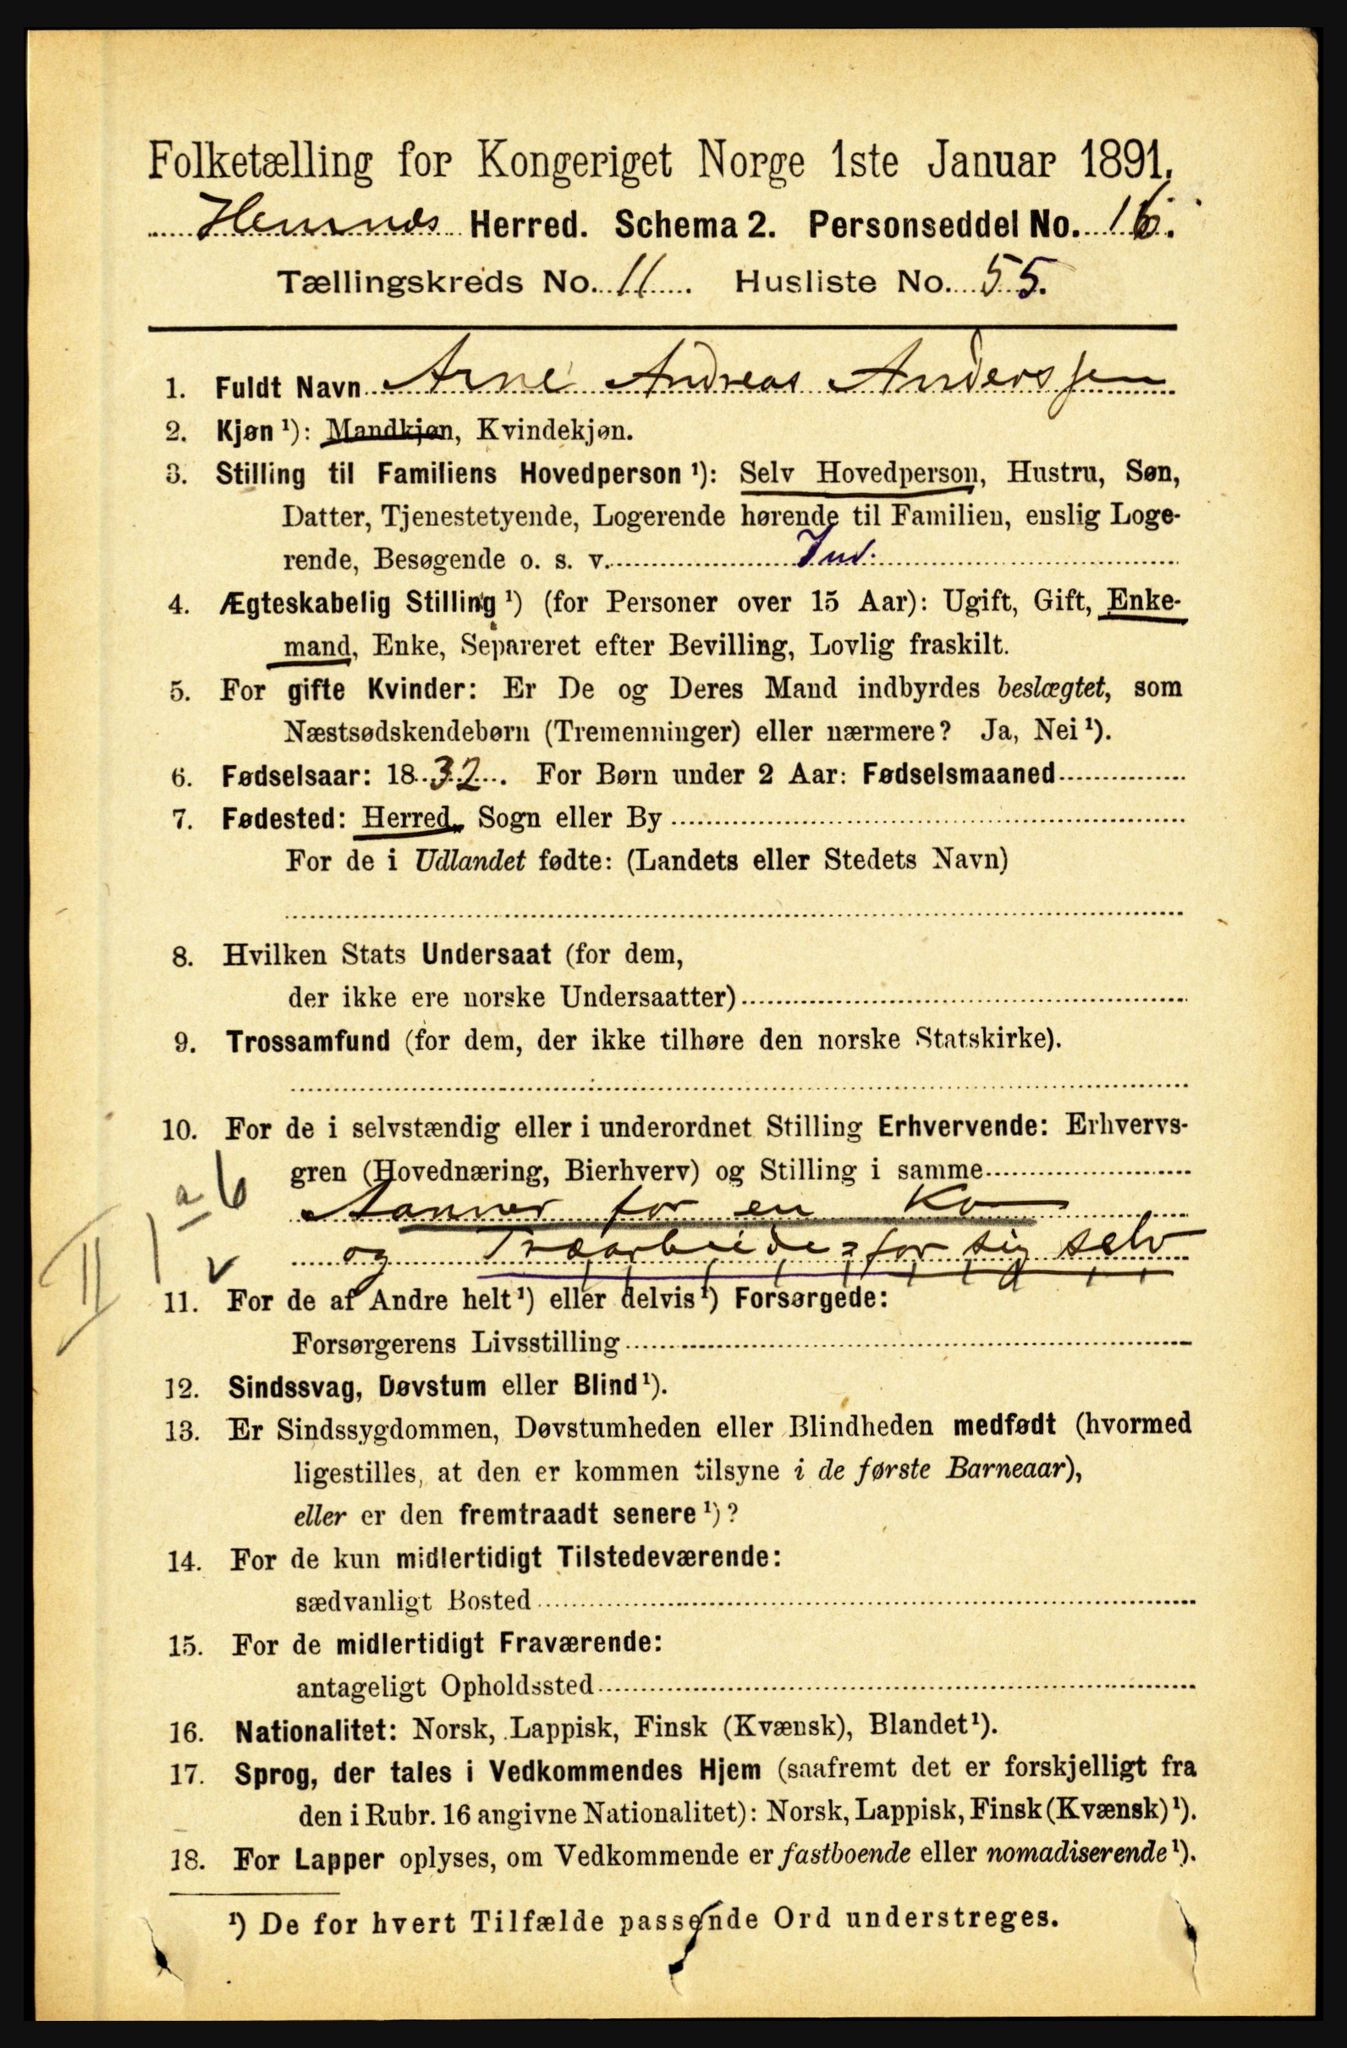 Folketælling for Kongeriget Norge 1ste Januar 1891.
Hemnæs Herred. Schema 2. Personseddel No. 16.
Tællingskreds No. 11. Husliste No. 55.
1. Fuldt Navn Arne Andreas Anderssen
2. Kjøn¹): Mandkjøn, Kvindekjøn.
3. Stilling til Familiens Hovedperson¹): Selv Hovedperson, Hustru, Søn,
Datter, Tjenestetyende, Logerende hørende til Familien, enslig Loge-
rende, Besøgende o. s. v. Ind.
4. Ægteskabelig Stilling¹) (for Personer over 15 Aar): Ugift, Gift, Enke-
mand, Enke, Separeret efter Bevilling, Lovlig fraskilt.
5. For gifte Kvinder: Er De og Deres Mand indbyrdes beslægtet, som
Næstsødskendebørn (Tremenninger) eller nærmere? Ja, Nei¹).
6. Fødselsaar: 1832. For Børn under 2 Aar: Fødselsmaaned
7. Fødested: Herred, Sogn eller By
For de i Udlandet fødte: (Landets eller Stedets Navn)
8. Hvilken Stats Undersaat (for dem,
der ikke ere norske Undersaatter)
9. Trossamfund (for dem, der ikke tilhøre den norske Statskirke).
10. For de i selvstændig eller i underordnet Stilling Erhvervende: Erhvervs-
gren (Hovednæring, Bierhverv) og Stilling i samme
a 6
Aanner for en Ko
II 1 v og Træarbeide for sig selv
11. For de af Andre helt¹) eller delvis¹) Forsørgede:
Forsørgerens Livsstilling
12. Sindssvag, Døvstum eller Blind¹).
13. Er Sindssygdommen, Døvstumheden eller Blindheden medfødt (hvormed
ligestilles, at den er kommen tilsyne i de første Barneaar),
eller er den fremtraadt senere¹)?
14. For de kun midlertidigt Tilstedeværende:
sædvanligt Bosted
15. For de midlertidigt Fraværende:
antageligt Opholdssted
16. Nationalitet: Norsk, Lappisk, Finsk (Kvænsk), Blandet¹).
17. Sprog, der tales i Vedkommendes Hjem (saafremt det er forskjelligt fra
den i Rubr. 16 angivne Nationalitet): Norsk, Lappisk, Finsk (Kvænsk)¹).
18. For Lapper oplyses, om Vedkommende er fastboende eller nomadiserende¹).
¹) De for hvert Tilfælde passende Ord understreges.